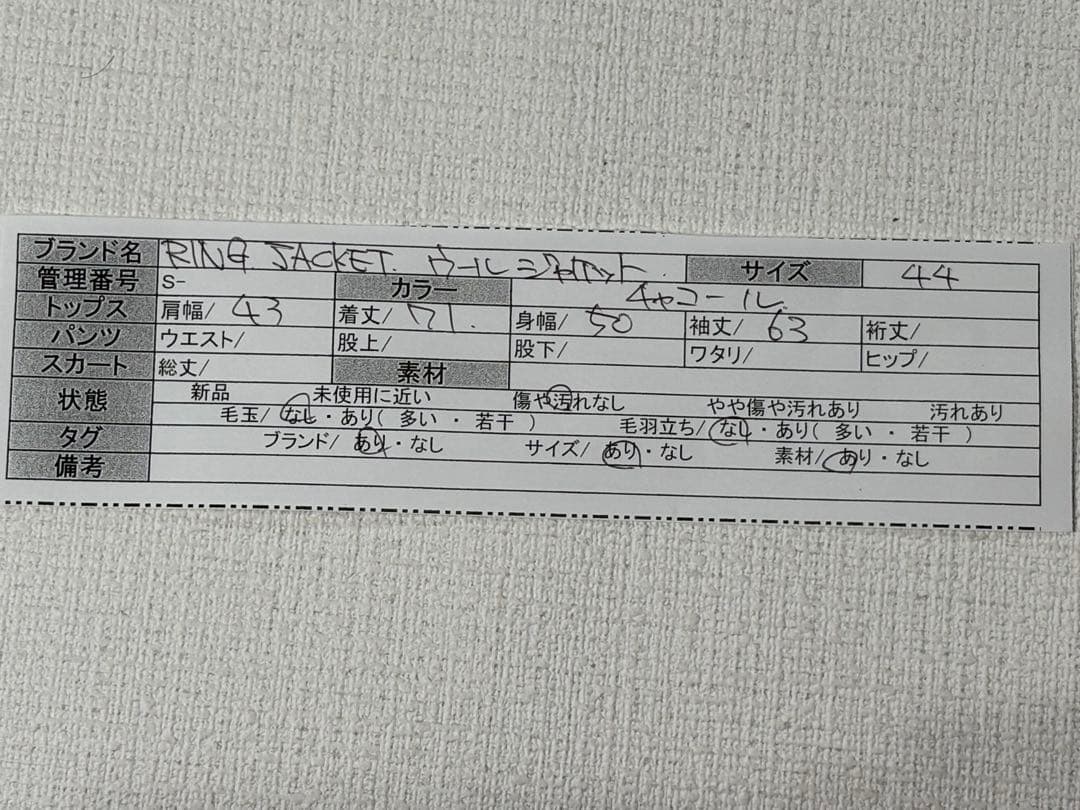 ブランド名 RING JACKET. ウールジャケット. サイズ 44
管理番号 S- カラー チャコール
トップス 肩幅/ 43 着丈/ 71. 身幅/ 50 袖丈/ 63 裄丈/
パンツ ウエスト/ 股上/ 股下/ ワタリ/ ヒップ/
スカート 総丈/ 素材
状態 新品 未使用に近い 傷や汚れなし やや傷や汚れあり 汚れあり
毛玉/ なし・あり( 多い ・ 若干 ) 毛羽立ち/ なし・あり( 多い ・ 若干 )
タグ ブランド/ あり・なし サイズ/ あり・なし 素材/ あり・なし
備考